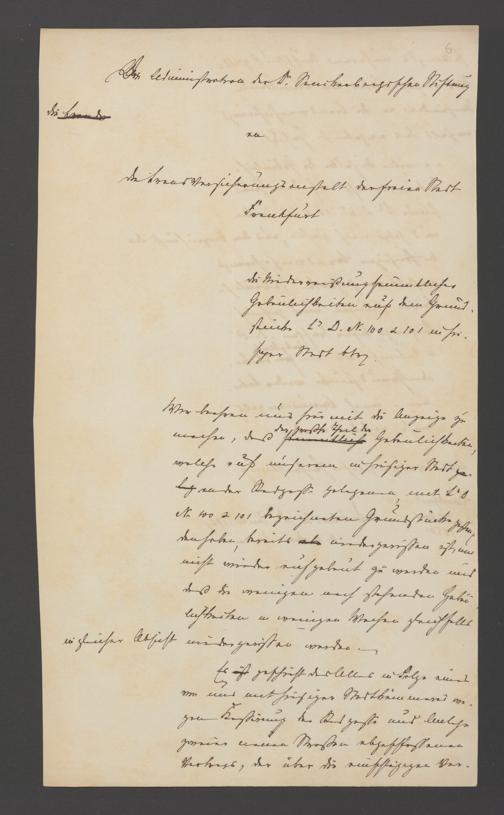 6
Die Administration der Dr. Senckenbergischen Stiftung
an
die Brandversicherungsanstalt der freien Stadt
Frankfurt
die Niederreißung sämmtlicher
Gebäulichkeiten auf dem Grund-
stücke Lr. D. N. 100 & 101 in hie-
siger Stadt btr.
Wir beehren uns hiermit die Anzeige zu
der größte Theil der
machen, daß sämmtliche Gebäulichkeiten,
welche auf unserem in hiesiger Stadt ge-
an der Radgasse gelegenen, mit Lr. D
N. 100 & 101 bezeichneten Grundstücke gestan-
den haben, bereits niedergerissen ist, um
nicht wieder aufgebaut zu werden und
daß die wenigen noch stehenden Gebäu-
lichkeiten in wenigen Wochen gleichfalls
in gleicher Absicht niedergerissen werden.
Es ist geschieht dies Alles in Folge eines
von uns mit hiesiger Stadtkämmerei we-
gen der Radgasse und Anlage
zweier neuen Straßen abgeschlossenen
Vertrags, der über die einschlägigen Ver-